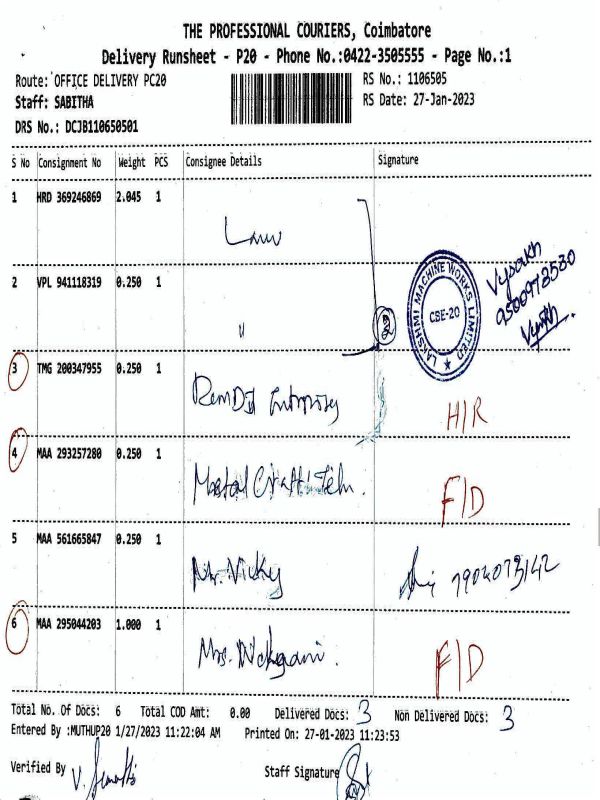 THE PROFESSIONAL COURIERS, Coimbatore
Delivery Runsheet - P20 - Phone No.:0422-3505555 - Page No.:1
Route: OFFICE DELIVERY PC20
RS No.: 1106505
Staff: SABITHA
RS Date: 27-Jan-2023
DRS No.: DCJB110650501
S No Consignment No Weight PCS Consignee Details Signature
1 HRD 369246869 2.045 1
LAKSHMI MACHINE WORKS LIMITED
CBE-20
Vysakh
2 VPL 941118319 0.250 1 "
3 TMG 200347955 0.250 1 H/R
4 MAA 293257280 0.250 1 F/D
5 MAA 561665847 0.250 1 Mr. Vicky 7904073142
6 MAA 295044203 1.000 1 Mrs. F/D
Total No. Of Docs: 6 Total COD Amt: 0.00 Delivered Docs: 3 Non Delivered Docs: 3
Entered By :MUTHUP20 1/27/2023 11:22:04 AM Printed On: 27-01-2023 11:23:53
Verified By Staff Signature